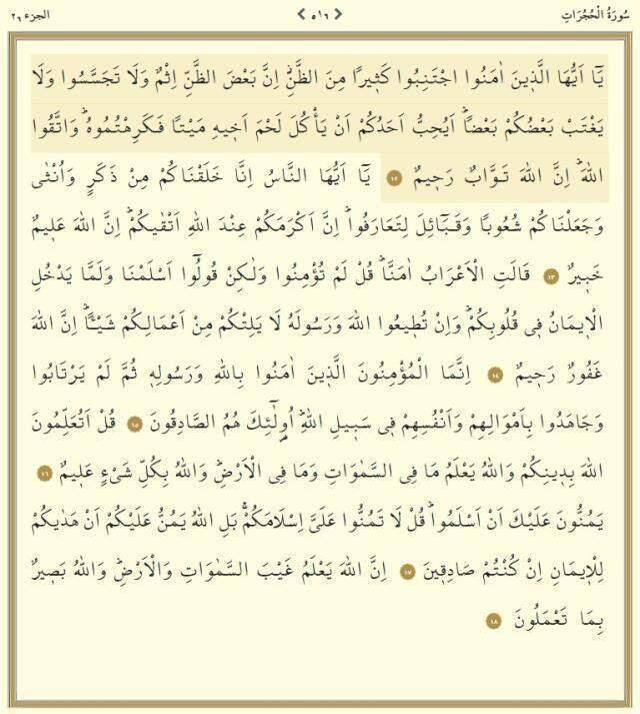 سُورَةُ الْحُجُرَاتِ ٥١٦ الجزء ٢٦
يَٓا اَيُّهَا الَّذ۪ينَ اٰمَنُوا اجْتَنِبُوا كَث۪يرًا مِنَ الظَّنِّۘ اِنَّ بَعْضَ الظَّنِّ اِثْمٌ وَلَا تَجَسَّسُوا وَلَا
يَغْتَبْ بَعْضُكُمْ بَعْضًاۜ اَيُحِبُّ اَحَدُكُمْ اَنْ يَأْكُلَ لَحْمَ اَخ۪يهِ مَيْتًا فَكَرِهْتُمُوهُۜ وَاتَّقُوا
اللّٰهَۜ اِنَّ اللّٰهَ تَوَّابٌ رَح۪يمٌ ١٢ يَٓا اَيُّهَا النَّاسُ اِنَّا خَلَقْنَاكُمْ مِنْ ذَكَرٍ وَاُنْثٰى
وَجَعَلْنَاكُمْ شُعُوبًا وَقَبَٓائِلَ لِتَعَارَفُواۜ اِنَّ اَكْرَمَكُمْ عِنْدَ اللّٰهِ اَتْقٰيكُمْۜ اِنَّ اللّٰهَ عَل۪يمٌ
خَب۪يرٌ ١٣ قَالَتِ الْاَعْرَابُ اٰمَنَّاۜ قُلْ لَمْ تُؤْمِنُوا وَلٰكِنْ قُولُٓوا اَسْلَمْنَا وَلَمَّا يَدْخُلِ
الْا۪يمَانُ ف۪ي قُلُوبِكُمْۜ وَاِنْ تُط۪يعُوا اللّٰهَ وَرَسُولَهُ لَا يَلِتْكُمْ مِنْ اَعْمَالِكُمْ شَيْـًٔاۜ اِنَّ اللّٰهَ
غَفُورٌ رَح۪يمٌ ١٤ اِنَّمَا الْمُؤْمِنُونَ الَّذ۪ينَ اٰمَنُوا بِاللّٰهِ وَرَسُولِه۪ ثُمَّ لَمْ يَرْتَابُوا
وَجَاهَدُوا بِاَمْوَالِهِمْ وَاَنْفُسِهِمْ ف۪ي سَب۪يلِ اللّٰهِۜ اُو۬لٰٓئِكَ هُمُ الصَّادِقُونَ ١٥ قُلْ اَتُعَلِّمُونَ
اللّٰهَ بِد۪ينِكُمْ وَاللّٰهُ يَعْلَمُ مَا فِي السَّمٰوَاتِ وَمَا فِي الْاَرْضِۜ وَاللّٰهُ بِكُلِّ شَيْءٍ عَل۪يمٌ ١٦
يَمُنُّونَ عَلَيْكَ اَنْ اَسْلَمُواۜ قُلْ لَا تَمُنُّوا عَلَيَّ اِسْلَامَكُمْۚ بَلِ اللّٰهُ يَمُنُّ عَلَيْكُمْ اَنْ هَدٰيكُمْ
لِلْا۪يمَانِ اِنْ كُنْتُمْ صَادِق۪ينَ ١٧ اِنَّ اللّٰهَ يَعْلَمُ غَيْبَ السَّمٰوَاتِ وَالْاَرْضِۜ وَاللّٰهُ بَص۪يرٌ
بِمَا تَعْمَلُونَ ١٨